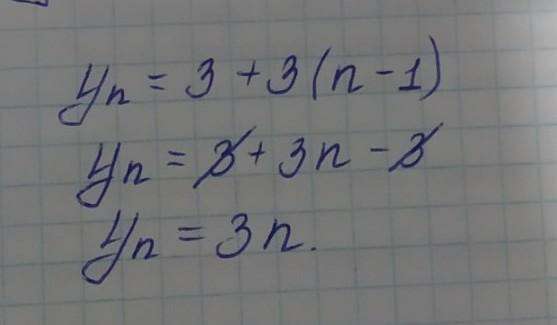 yₙ = 3 + 3(n - 1)
yₙ = 3 + 3n - 3
yₙ = 3n.